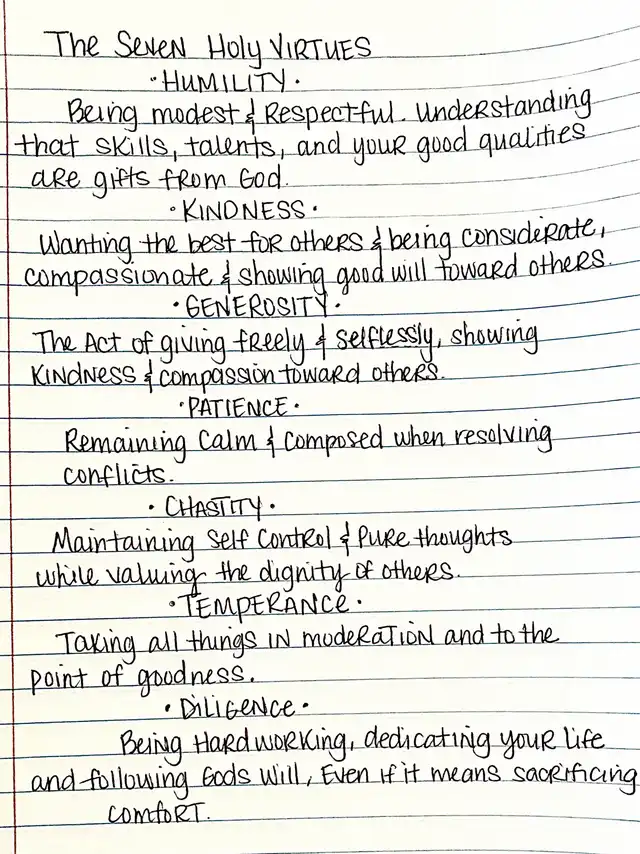 The Seven Holy VIRTUES
·HUMILITY·
Being modest & Respectful. Understanding
that skills, talents, and your good qualities
are gifts from God.
·KINDNESS·
Wanting the best for others & being considerate,
compassionate & showing good will toward others.
·GENEROSITY·
The Act of giving freely & selflessly, showing
KINDNESS & compassion toward others.
·PATIENCE·
Remaining Calm & composed when resolving
conflicts.
·CHASTITY·
Maintaining Self Control & Pure thoughts
while valuing the dignity of others.
·TEMPERANCE·
Taking all things IN moderation and to the
point of goodness.
·DILIGENCE·
Being Hardworking, dedicating your life
and following Gods Will, Even if it means sacrificing
comfort.